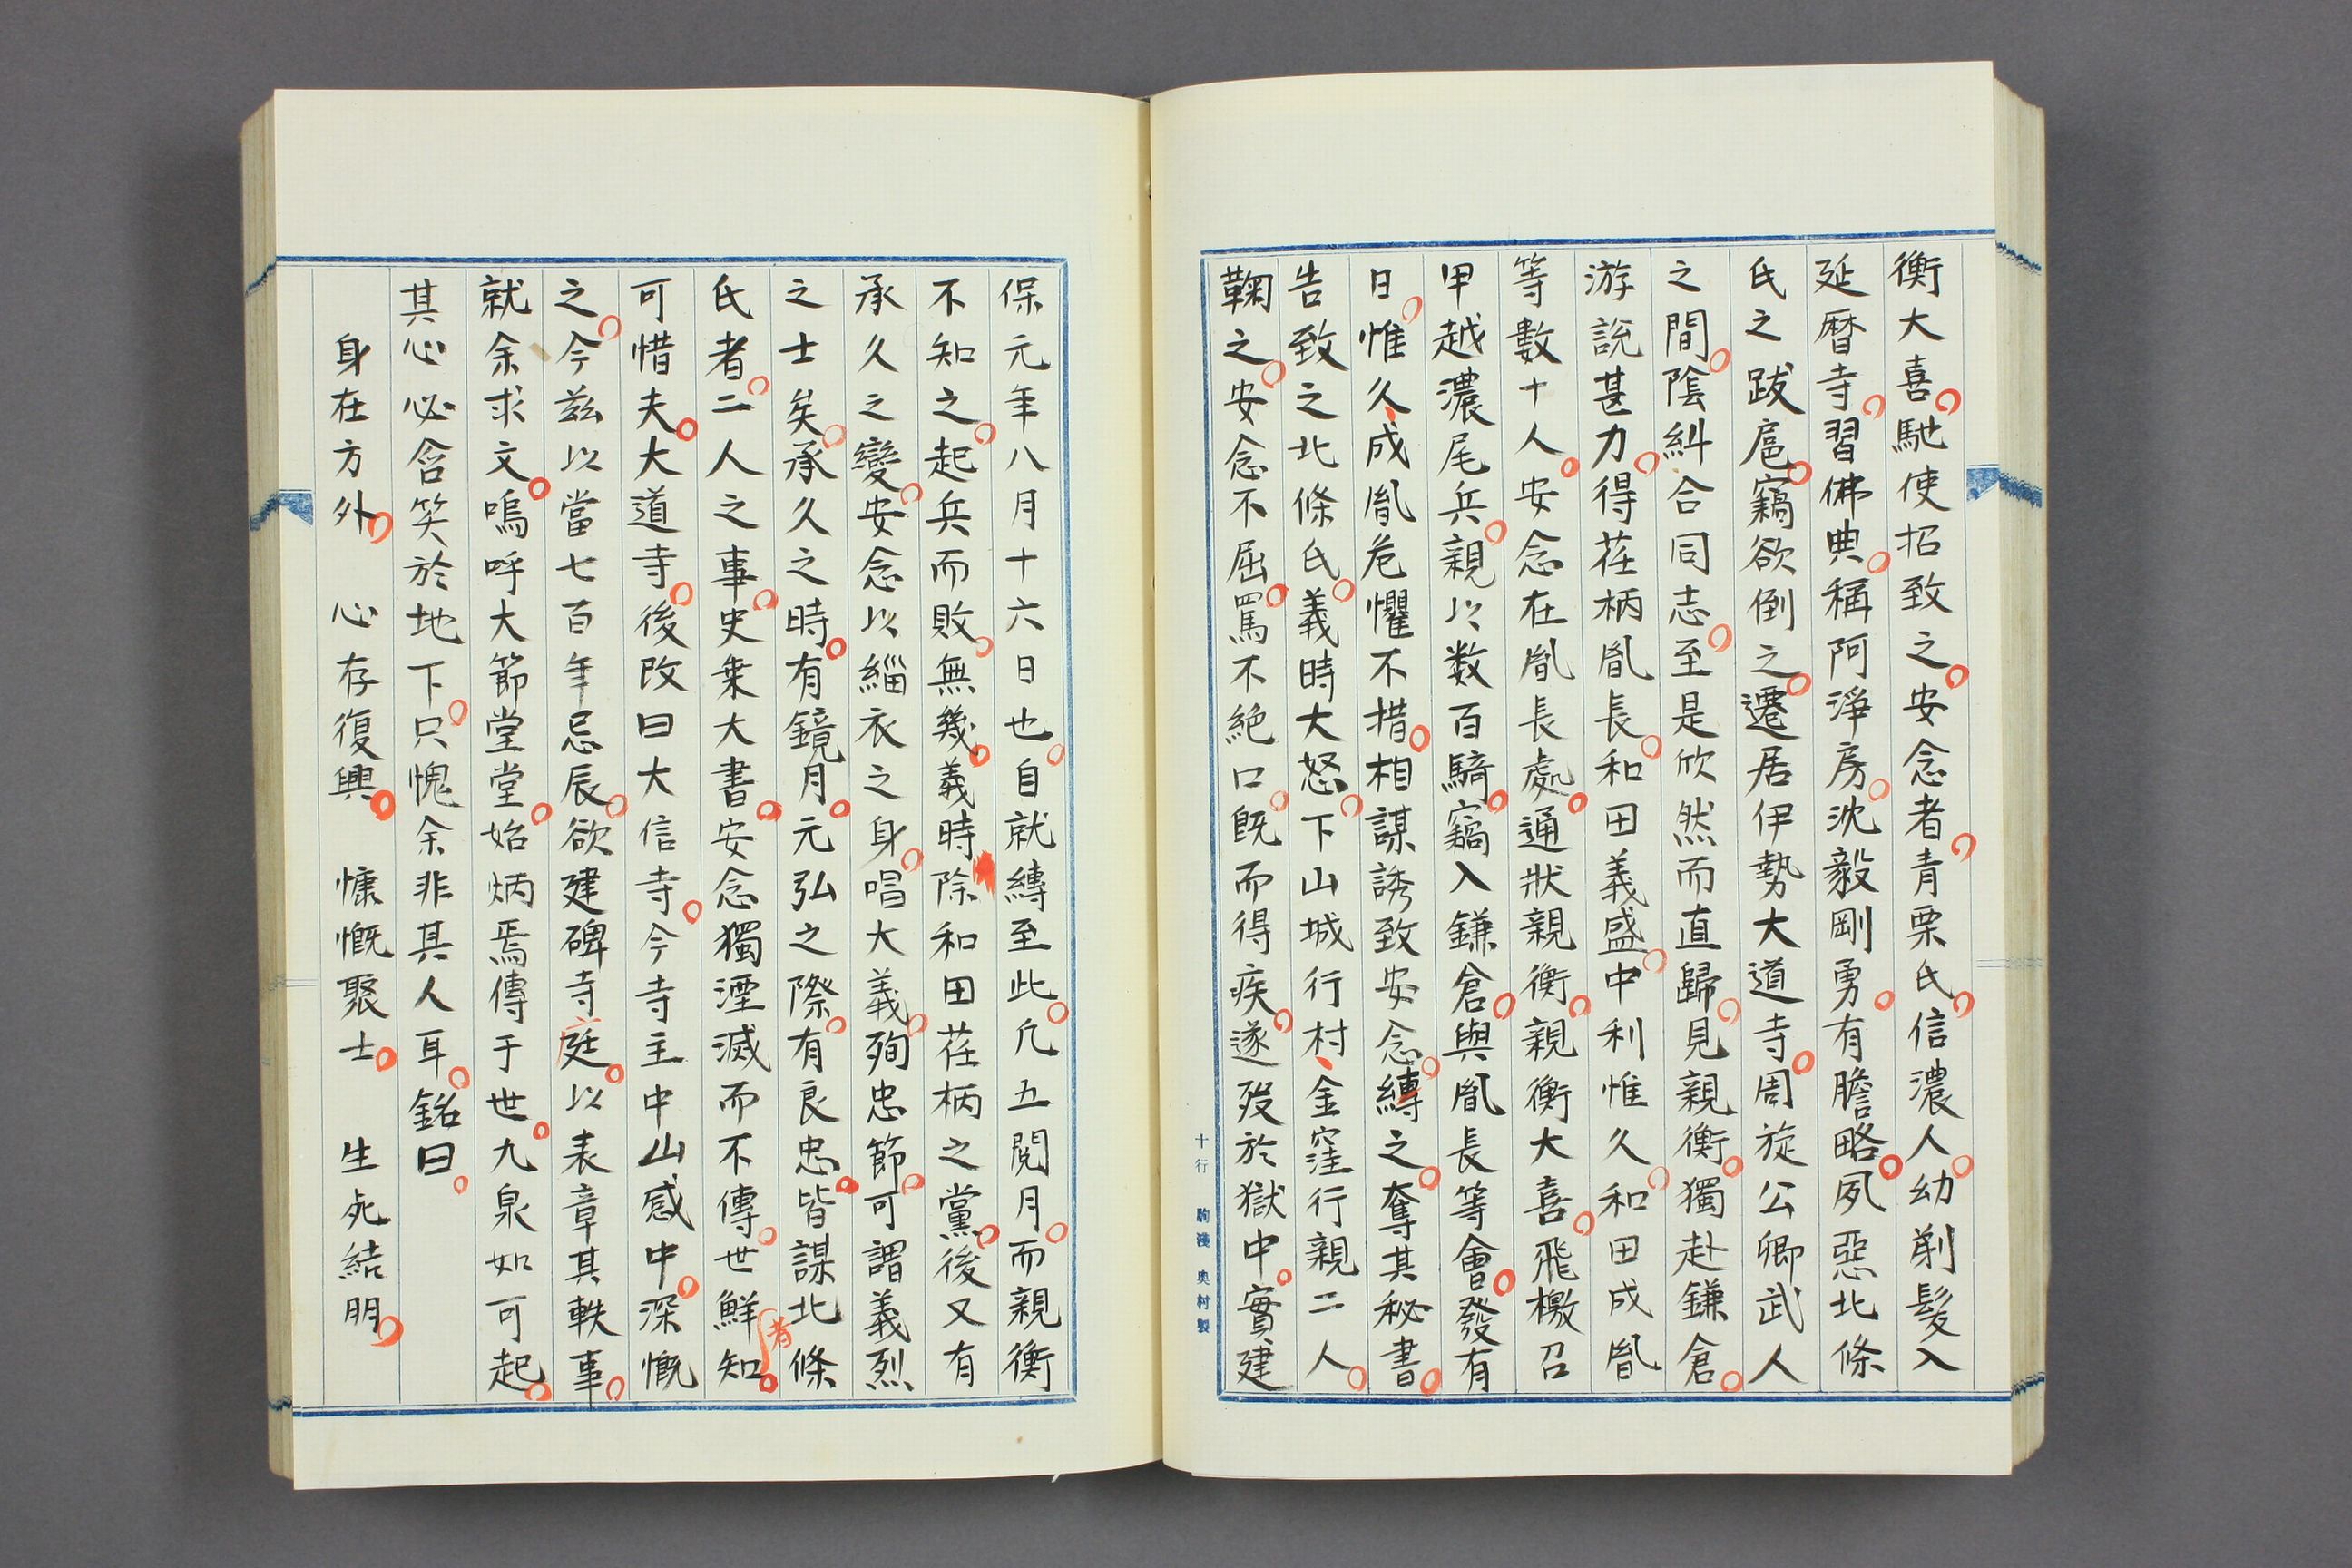 衡大喜馳使招致之安念者青栗氏信濃人幼剃髮入
延暦寺習佛典稱阿淨房沈毅剛勇有膽略夙惡北條
氏之跋扈竊欲倒之遷居伊勢大道寺周旋公卿武人
之間陰糾合同志至是欣然而直歸見親衡獨赴鎌倉
游説甚力得荏柄胤長和田義盛中利惟久和田成胤
等數十人安念在胤長處通狀親衡親衡大喜飛檄召
甲越濃尾兵親以数百騎竊入鎌倉與胤長等會發有
日惟久、成胤危懼不措相謀誘致安念縛之奪其秘書
告致之北條氏義時大怒下山城行村、金窪行親二人
鞠之安念不屈罵不絶口既而得疾遂歿於獄中實建
十行 駒漫 奥村製
保元年八月十六日也自就縛至此凡五閲月而親衡
不知之起兵而敗無幾義時除和田荏柄之黨後又有
承久之變安念以緇衣之身唱大義殉忠節可謂義烈
之士矣承久之時有鏡月元弘之際有良忠皆謀北條
氏者二人之事史乗大書安念獨湮滅而不傳世鮮知者
可惜夫大道寺後改曰大信寺今寺主中山感中深慨
之今茲以當七百年忌辰欲建碑寺庭以表章其軼事
就余求文嗚呼大節堂堂始炳焉傳于世九泉如可起
其心必含笑於地下只愧余非其人耳銘曰
身在方外 心存復興 慷慨聚士 生死結朋